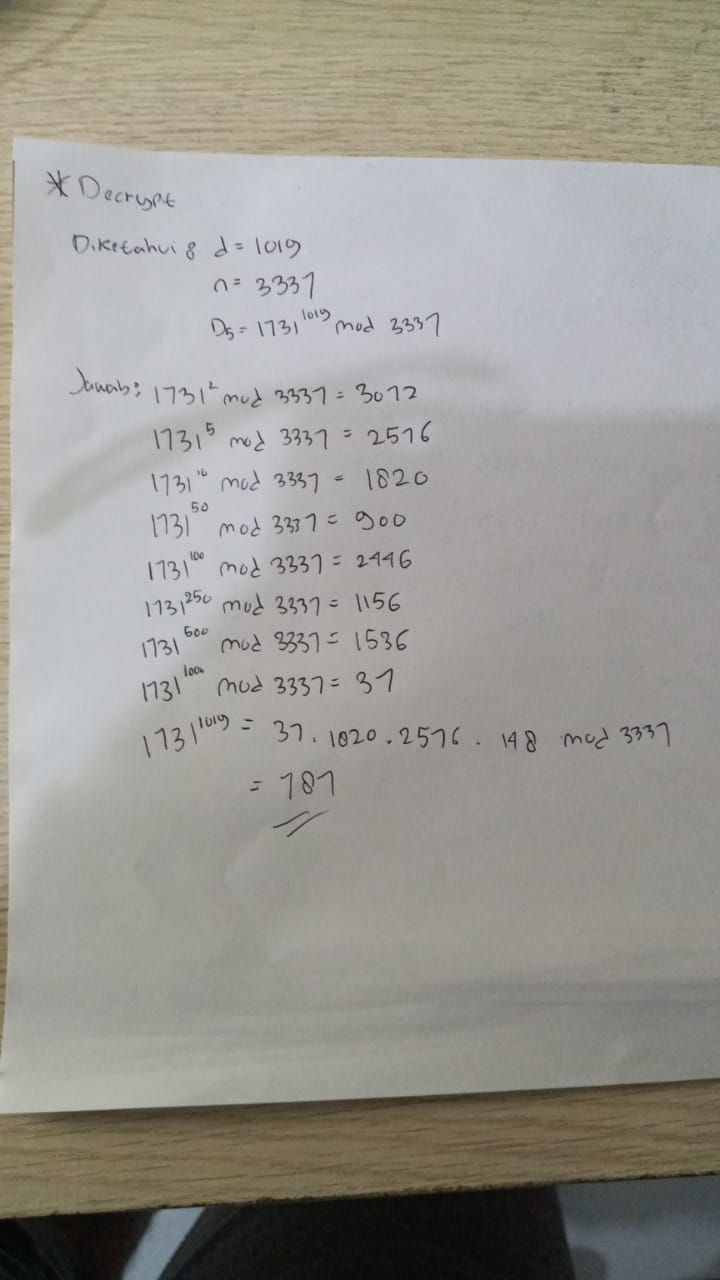 * Decrypt
Diketahui : d = 1019
n = 3337
D₅ = 1731¹⁰¹⁹ mod 3337
Jawab : 1731² mod 3337 = 3072
1731⁵ mod 3337 = 2576
1731¹⁰ mod 3337 = 1820
1731⁵⁰ mod 3337 = 900
1731¹⁰⁰ mod 3337 = 2446
1731²⁵⁰ mod 3337 = 1156
1731⁵⁰⁰ mod 3337 = 1536
1731¹⁰⁰⁰ mod 3337 = 37
1731¹⁰¹⁹ = 37 . 1820 . 2576 . 148 mod 3337
= 787